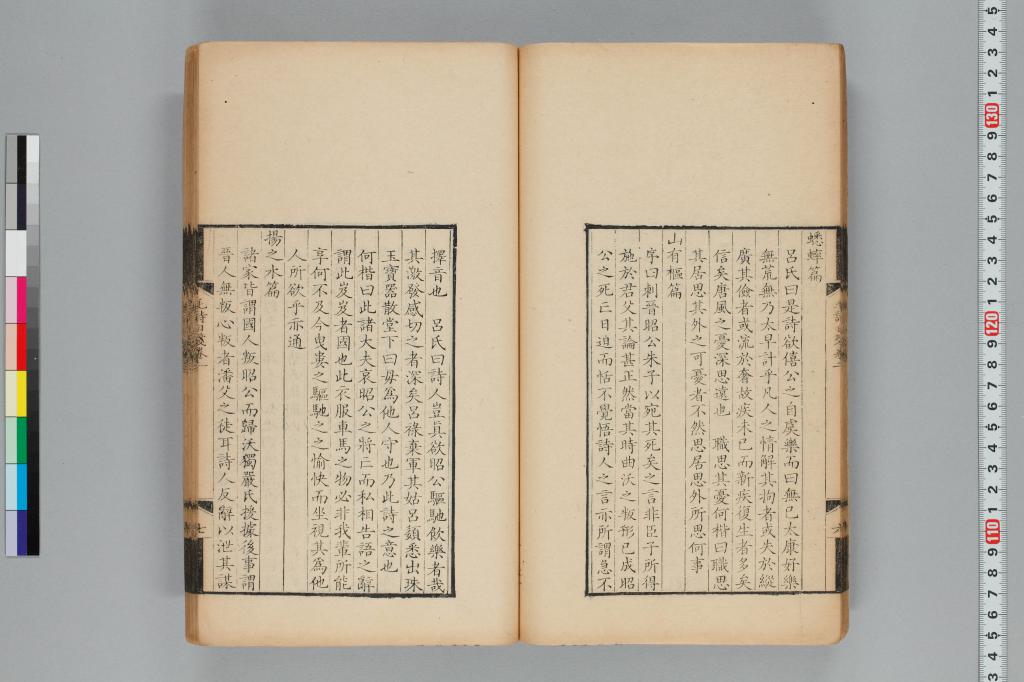 蟋蟀篇
呂氏曰是詩欲僖公之自虞樂而曰無已太康好樂
無荒無乃太早計乎凡人之情解其拘者或失於縱
廣其儉者或流於奢故疾未已而新疾復生者多矣
信矣唐風之憂深思遠也 職思其憂何楷曰職思
其居思其外之可憂者不然思居思外所思何事
山有樞篇
序曰刺晉昭公朱子以宛其死矣之言非臣子所得
施於君父其論甚正然當其時曲沃之叛形已成昭
公之死亡日迫而恬不覺悟詩人之言亦所謂急不
六
擇音也 呂氏曰詩人豈眞欲昭公驅馳飲樂者哉
其激發感切之者深矣呂祿棄軍其姑呂嬃悉出珠
玉寶器散堂下曰毋爲他人守也乃此詩之意也
何楷曰此諸大夫哀昭公之將亡而私相告語之辭
謂此岌岌者國也此衣服車馬之物必非我輩所能
享何不及今曳婁之驅馳之之愉快而坐視其爲他
人所欲乎亦通
揚之水篇
諸家皆謂國人叛昭公而歸沃獨嚴氏援據後事謂
晉人無叛心叛者潘父之徒耳詩人反辭以泄其謀
七